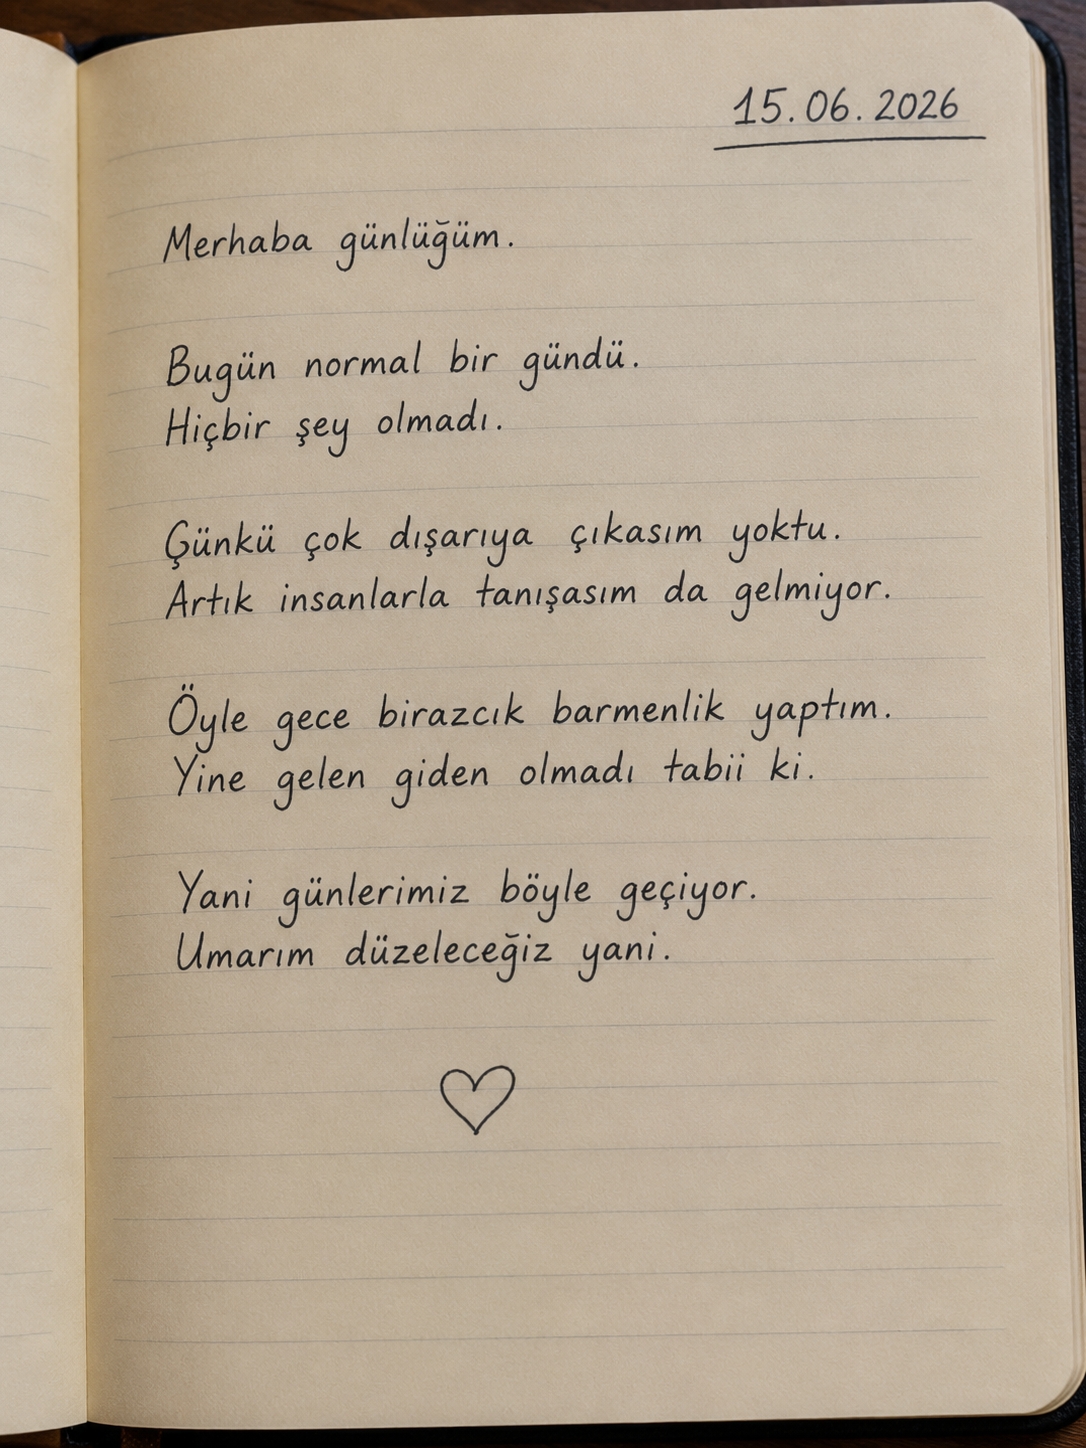 15.06.2026
Merhaba günlüğüm.
Bugün normal bir gündü.
Hiçbir şey olmadı.
Çünkü çok dışarıya çıkasım yoktu.
Artık insanlarla tanışasım da gelmiyor.
Öyle gece birazcık barmenlik yaptım.
Yine gelen giden olmadı tabii ki.
Yani günlerimiz böyle geçiyor.
Umarım düzeleceğiz yani.